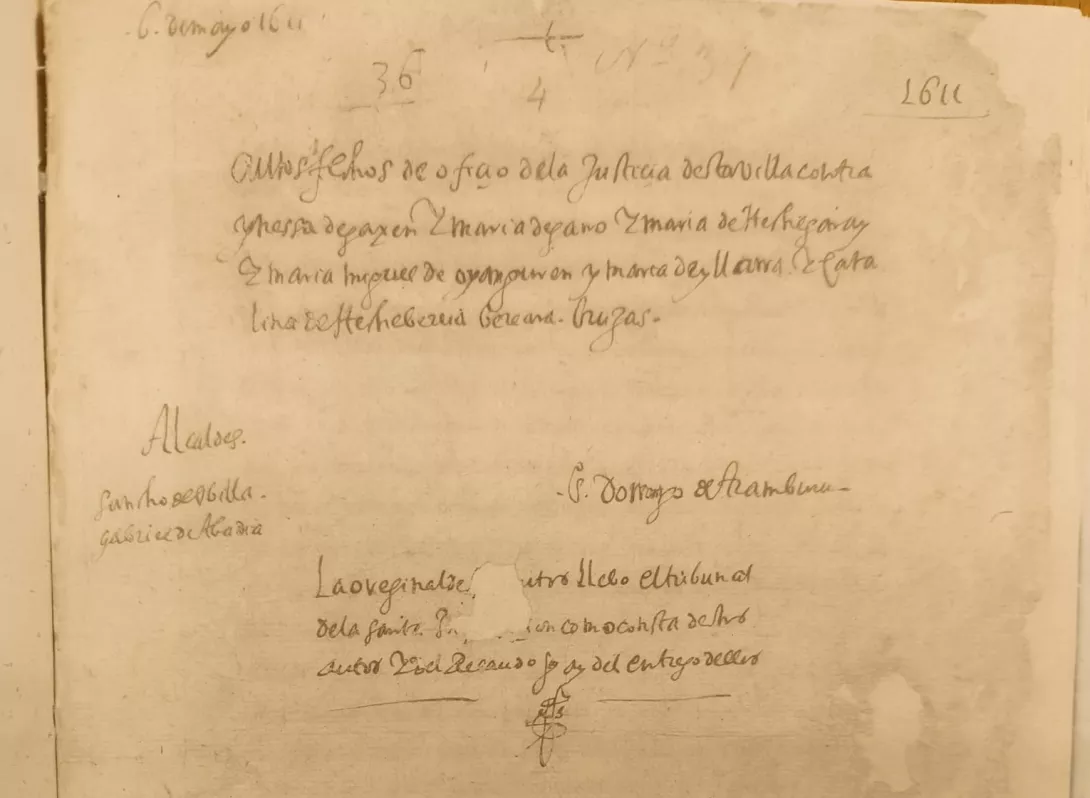 6. de mayo 1611
36
4
Nº 31
1611
Autos fechos de ofiçio de la Justicia desta villa contra
ynessa de gaxen Y maria de gar[r]o Y maria de Hechegaray
Y maria miguel de oyanguren y maria de yllarra. Y Cata
lina de Hecheberria Bereara. bruzas.
Alcaldes.
Sancho de Ubilla.
gabriel de Abadia
Es. Domingo de Aramburu
La oreginal de utro llebo el tribunal
de la santa ion como consta destro
autor Y del Recaudo q ay del entrego dello